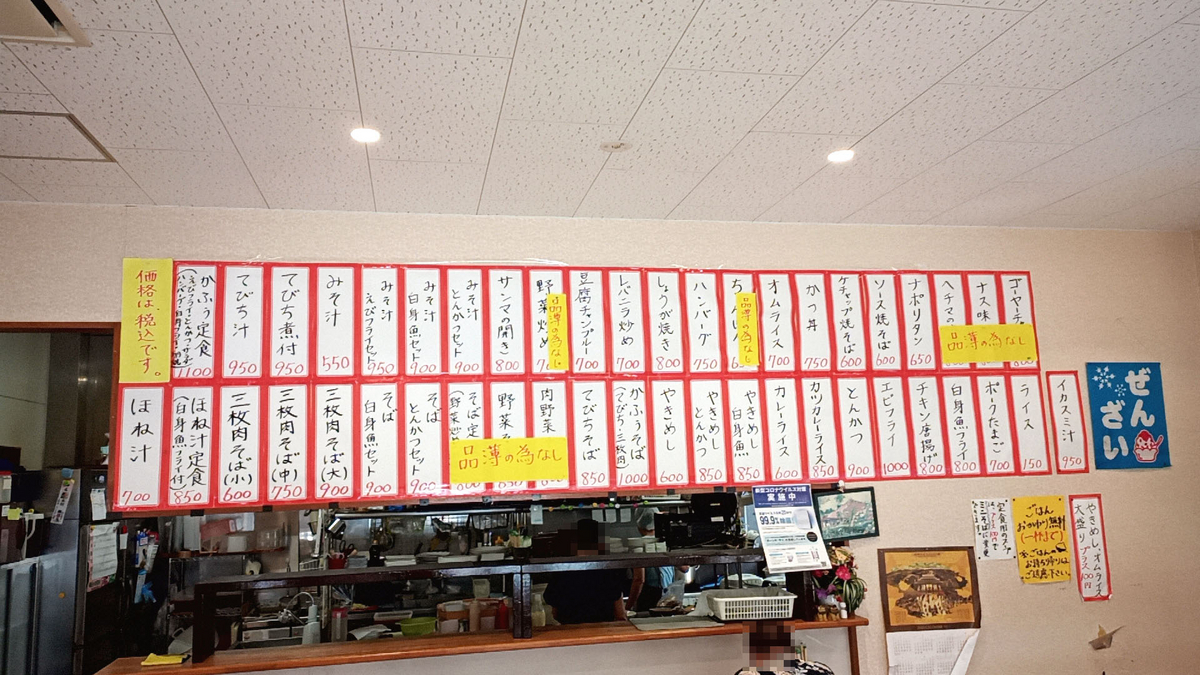 価格は、税込です。
かふぅ定食
1100
てびち汁
950
てびち煮付
950
みそ汁
550
みそ汁
えびフライセット
950
みそ汁
白身魚セット
900
みそ汁
とんかつセット
900
サンマの開き
800
野菜炒め
品薄の為なし
豆腐チャンプル
700
レバニラ炒め
700
しょうが焼き
800
ハンバーグ
750
品薄の為なし
オムライス
700
かつ丼
750
ケチャップ焼そば
600
ソース焼そば
600
ナポリタン
650
ヘチマの
ナス味
ゴーヤーチ
品薄の為なし
ほね汁
700
ほね汁定食
(白身魚フライ付)
850
三枚肉そば(小)
600
三枚肉そば(中)
750
三枚肉そば(大)
900
そば
白身魚セット
900
そば
とんかつセット
900
そば定
野菜そ
肉野菜
品薄の為なし
てびちそば
850
かふぅそば
(てびち・三枚肉)
1000
やきめし
600
やきめし
とんかつ
850
やきめし
白身魚
850
カレーライス
600
カツカレーライス
850
とんかつ
900
エビフライ
1000
チキン唐揚げ
800
白身魚フライ
800
ポークたまご
700
ライス
150
イカスミ汁
950
ぜんざい
新型コロナウイルス対策
実施中
99.9%
ごはん
おかわり無料
(一杯まで)
お持ち帰りは
ご遠慮下さい。
やきめし、オムライス
大盛りプラス100円